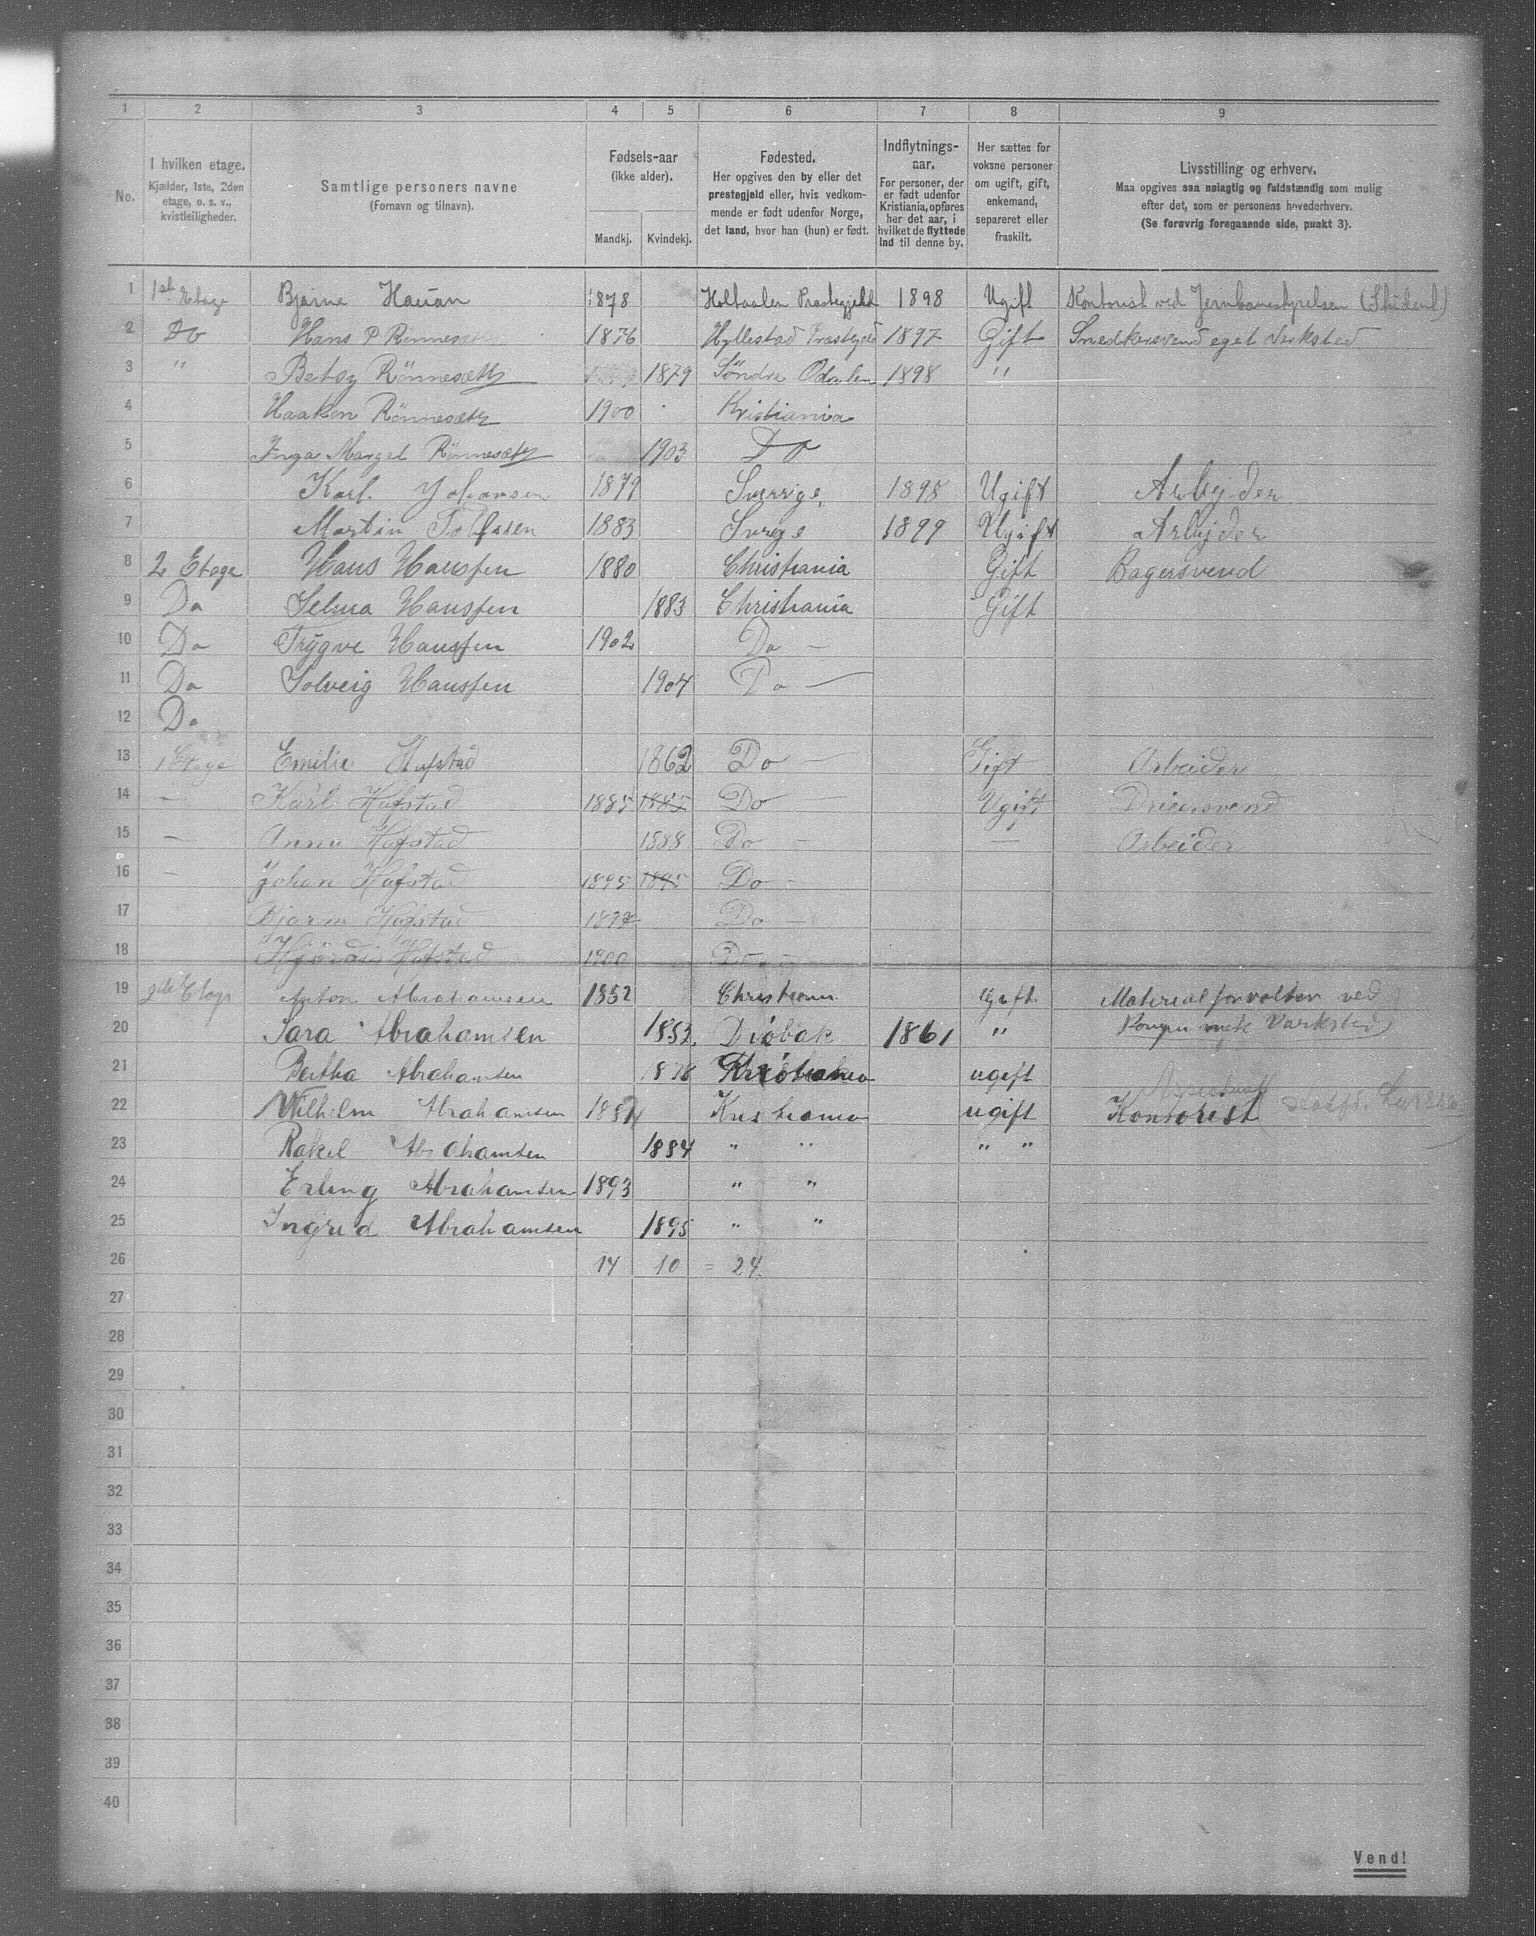 1 2 3 4 5 6 7 8 9
No. I hvilken etage. Kjælder, 1ste, 2den etage, o. s. v., kvistleiligheder. Samtlige personers navne (Fornavn og tilnavn). Fødsels-aar (ikke alder). Mandkj. Kvindekj. Fødested. Her opgives den by eller det prestegjeld eller, hvis vedkommende er født udenfor Norge, det land, hvor han (hun) er født. Indflytnings-aar. For personer, der er født udenfor Kristiania, opføres her det aar, i hvilket de flyttede ind til denne by. Her sættes for voksne personer om ugift, gift, enkemand, separeret eller fraskilt. Livsstilling og erhverv. Maa opgives saa nøiagtig og fuldstændig som mulig efter det, som er personens hovederhverv. (Se forøvrig foregaaende side, punkt 3).
1 1st Etage Bjarne Hauan 1878 Holtaalen Prestegjeld 1898 Ugift Kontorist ved Jernbanestyrelsen (Student)
2 Do Hans P Rönnesæth 1876 Hyllestad Præstegjeld 1897 Gift Snedkersvend eget Verksted
3 " Betsy Rönnesæth 1879 Söndre Odalen 1898 "
4 Haakon Rönnesæth 1900 Kristiania
5 Inga Marget Rönnesæth 1903 Do
6 Karl Johansen 1879 Sverrige 1898 Ugift Arbejder
7 Martin 1883 Sverge 1899 Ugift Arbejder
8 2 Etage Hans Hanssen 1880 Christiania Gift Bagersvend
9 Do Selma Hanssen 1883 Christiania Gift
10 Do Trygve Hanssen 1902 Do —
11 Do Solveig Hanssen 1904 Do —
12 Do
13 1 Etage Emilie Hafstad 1862 Do — Gift Arbeider
14 — Karl Hafstad 1885 1885 Do — Ugift Dreiersvend
15 — Anna Hafstad 1888 Do — — Arbeider
16 — Johan Hafstad 1895 1895 Do -
17 Bjarne Hafstad 1897 Do —
18 Hjördis Hafstad 1900 Do -
19 2de Etage Anton Abrahamsen 1852 Christiania Gift. Materialforvalter ved
20 Sara Abrahamsen 1853. Dröbak 1861 " Verksted
21 Bertha Abrahamsen 1878 Kristiania ugift
22 Wilhelm Abrahamsen 1881 Kristiania ugift Kontorist
23 Rakel Abrahamsen 1884 " " " "
24 Erling Abrahamsen 1893 " "
25 Ingrid Abrahamsen 1895 " "
26 14 10 = 24.
27
28
29
30
31
32
33
34
35
36
37
38
39
40
Vend!